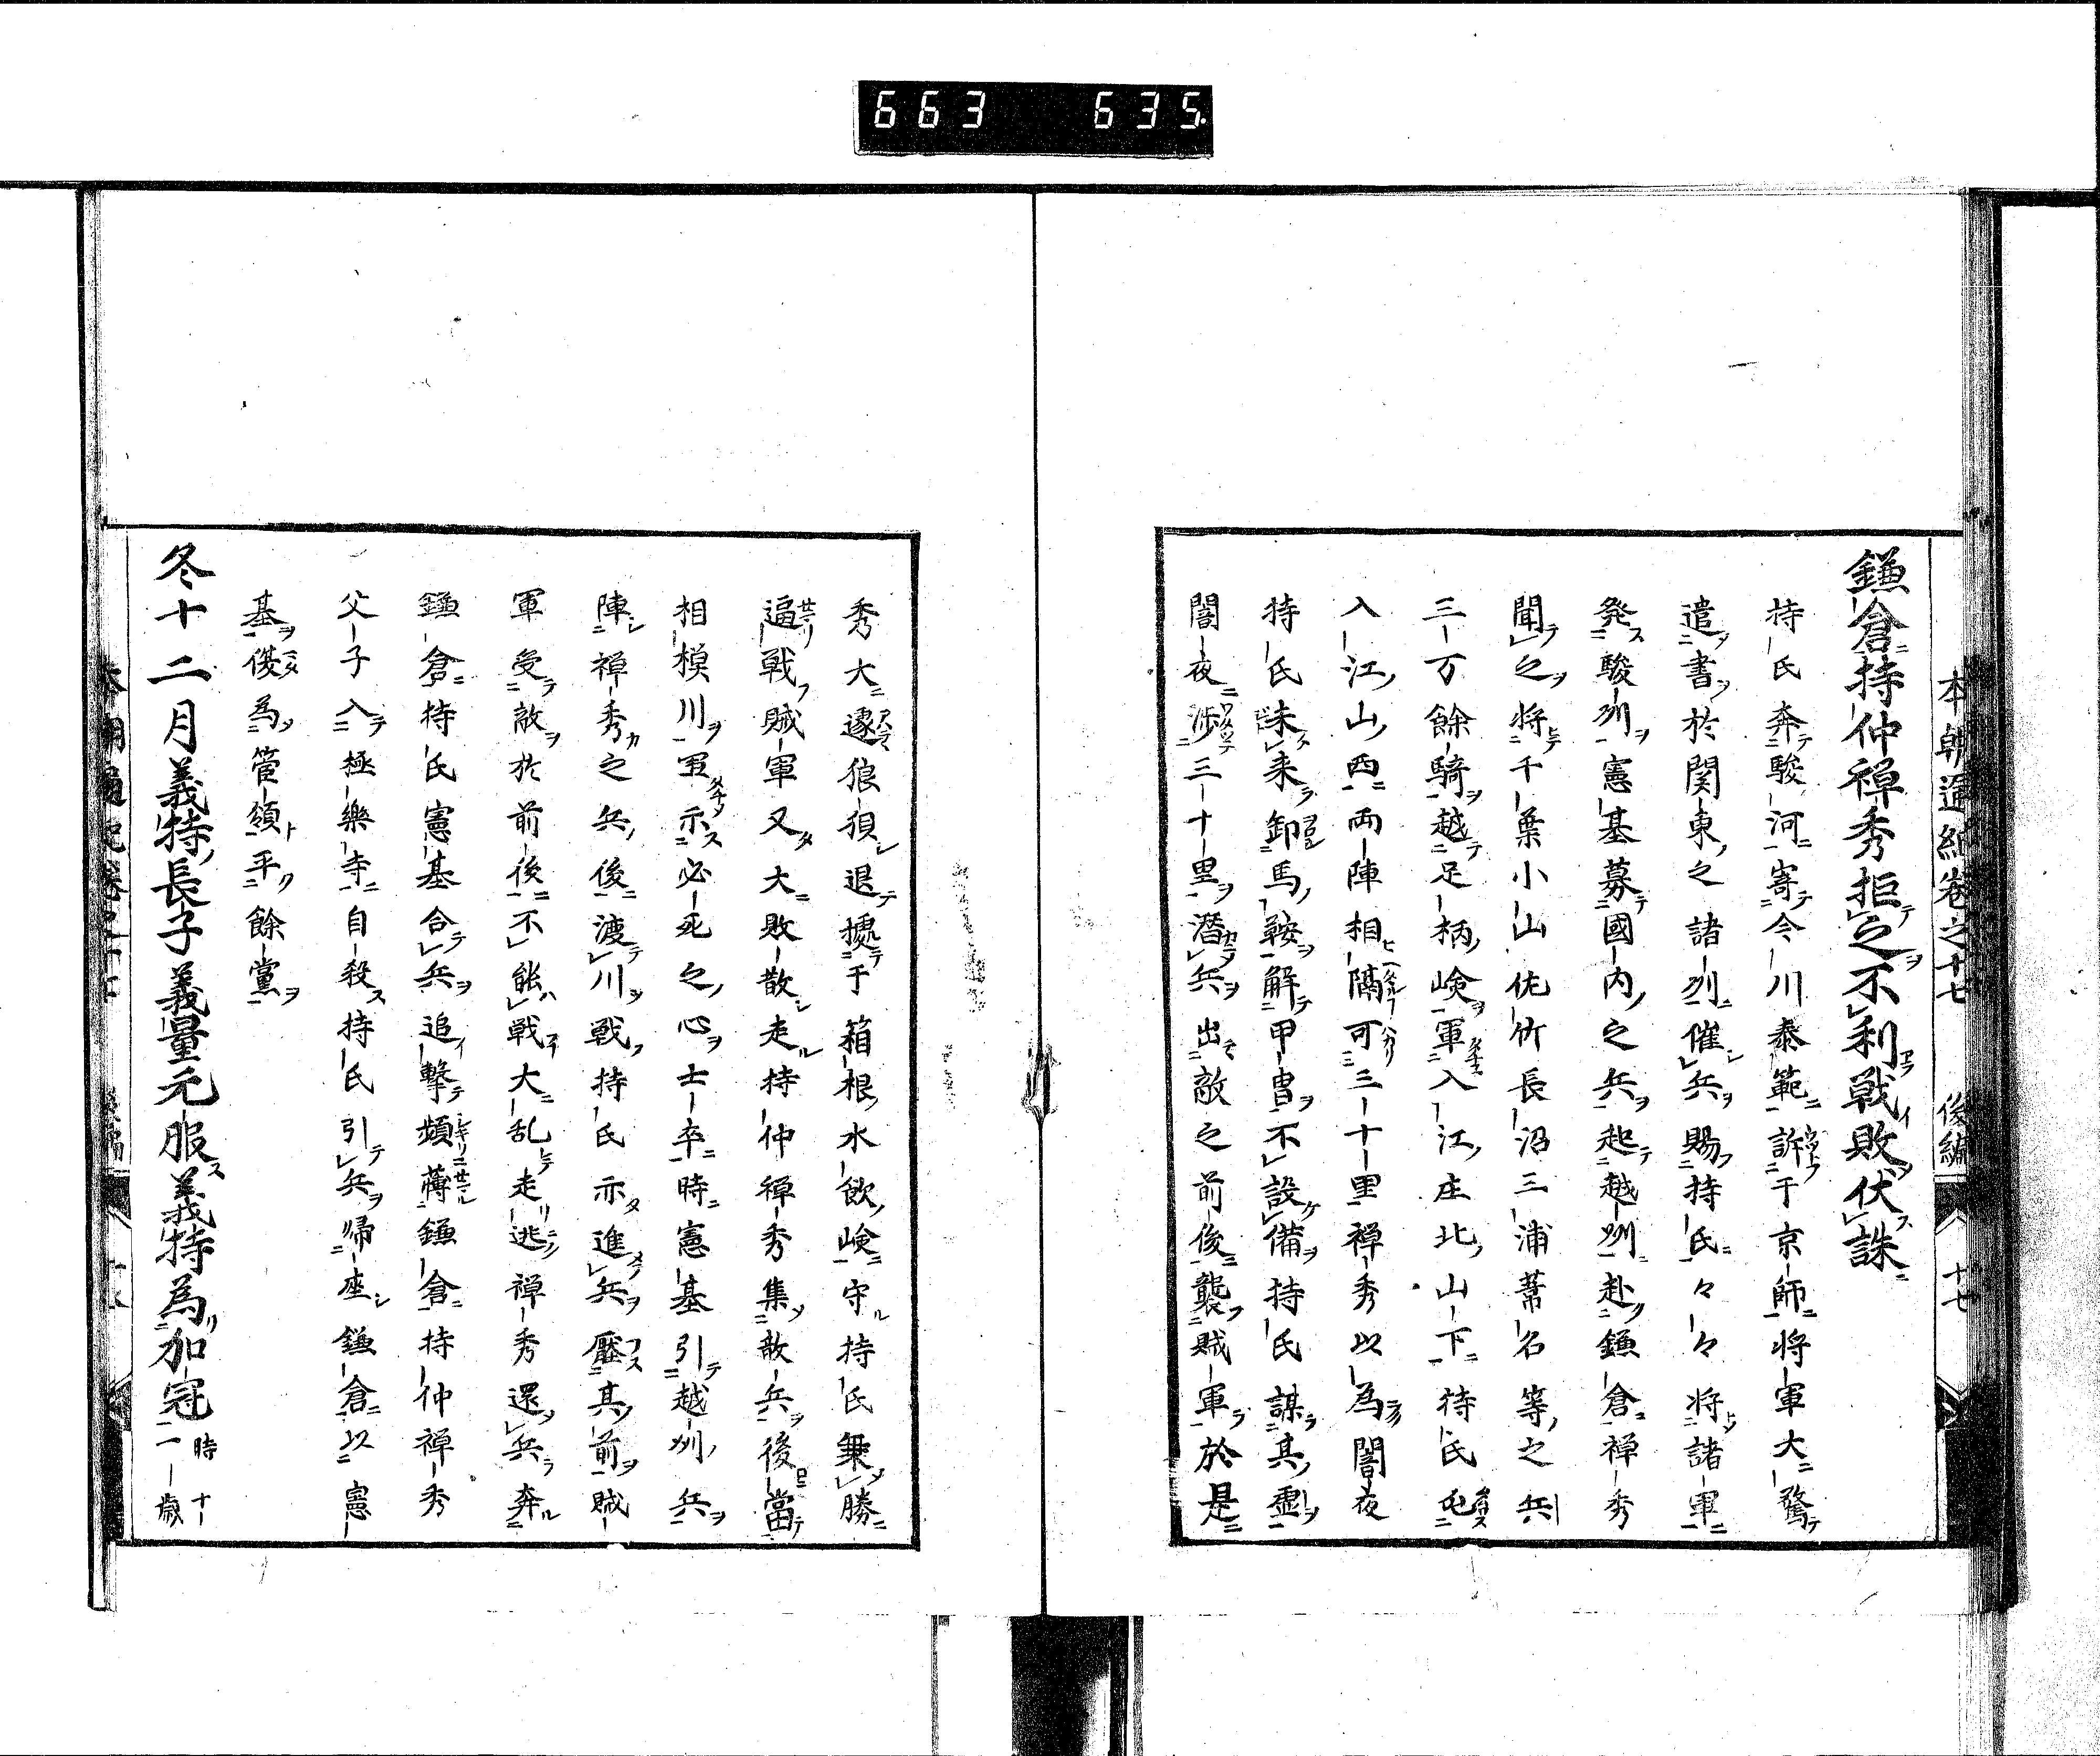 663 635
本朝通紀卷之十七 後編 十七
鎌倉持仲禅秀拒之不利戦敗伏誅
持氏奔駿河寄今川泰範訴于京師将軍大驚
遣書於関東之諸州催兵賜持氏々々将諸軍
発駿州憲基募國内之兵起越州赴鎌倉禅秀
聞之将千葉小山佐竹長沼三浦葦名等之兵
三万餘騎越足柄嶮軍入江庄北山下待氏屯
入江山西両陣相隔可三十里禅秀以為闇夜
持氏未来卸馬鞍解甲冑不設備持氏謀其虚
闇夜渉三十里潜兵出敵之前後襲賊軍於是
秀大遽狼狽退據于箱根水飲嶮守持氏乗勝
逼戦賊軍又大敗散走持仲禅秀集散兵後當
相模川軍示必死之心士卒時憲基引越州兵
陣禅秀之兵後渡川戦持氏亦進兵壓其前賊
軍受敵於前後不能戦大乱走逃禅秀還兵奔
鎌倉持氏憲基合兵追撃頻薄鎌倉持仲禅秀
父子入極楽寺自殺持氏引兵帰座鎌倉以憲
基復為管領平餘黨
冬十二月義持長子義量元服義持為加冠時十一歳